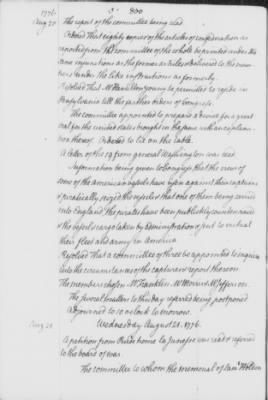 1776. 3. 300
Aug 20 The report of the committee being read
Ordered That eighty copies of the articles of confederation as
reported from the committee of the whole be printed under the
same injunctions as the former articles & delivered to the mem-
bers under the like instructions as formerly.
Resolved That Mr Hamilton young be permitted to reside in
Pensylvania till the farther orders of Congress.
The committee appointed to prepare a device for a great
seal for the united states brought in the same with an explana-
tion thereof. Ordered to lie on the table.
A letter of the 19 from general Washington was read
Information being given to Congress that the crew of
some of the American vessels have risen against their captains
& piratically seized the vessels & that one of them being carried
into England, the pirates have been publickly countenanced
& the vessel & cargo taken by administration & put to victual
their fleet and army in America
Resolved That a committee of three be appointed to inquire
into the circumstances of the capture & report thereon
The members chosen Mr Franklin, Mr Morris & Mr Jefferson.
The several matters to this day referred being postponed
Adjourned to 10 o clock to morrow.
Aug 21 Wednesday August 21. 1776.
A petition from was read & referred
to the board of war.
The committee to whom the memorial of Saml Holden